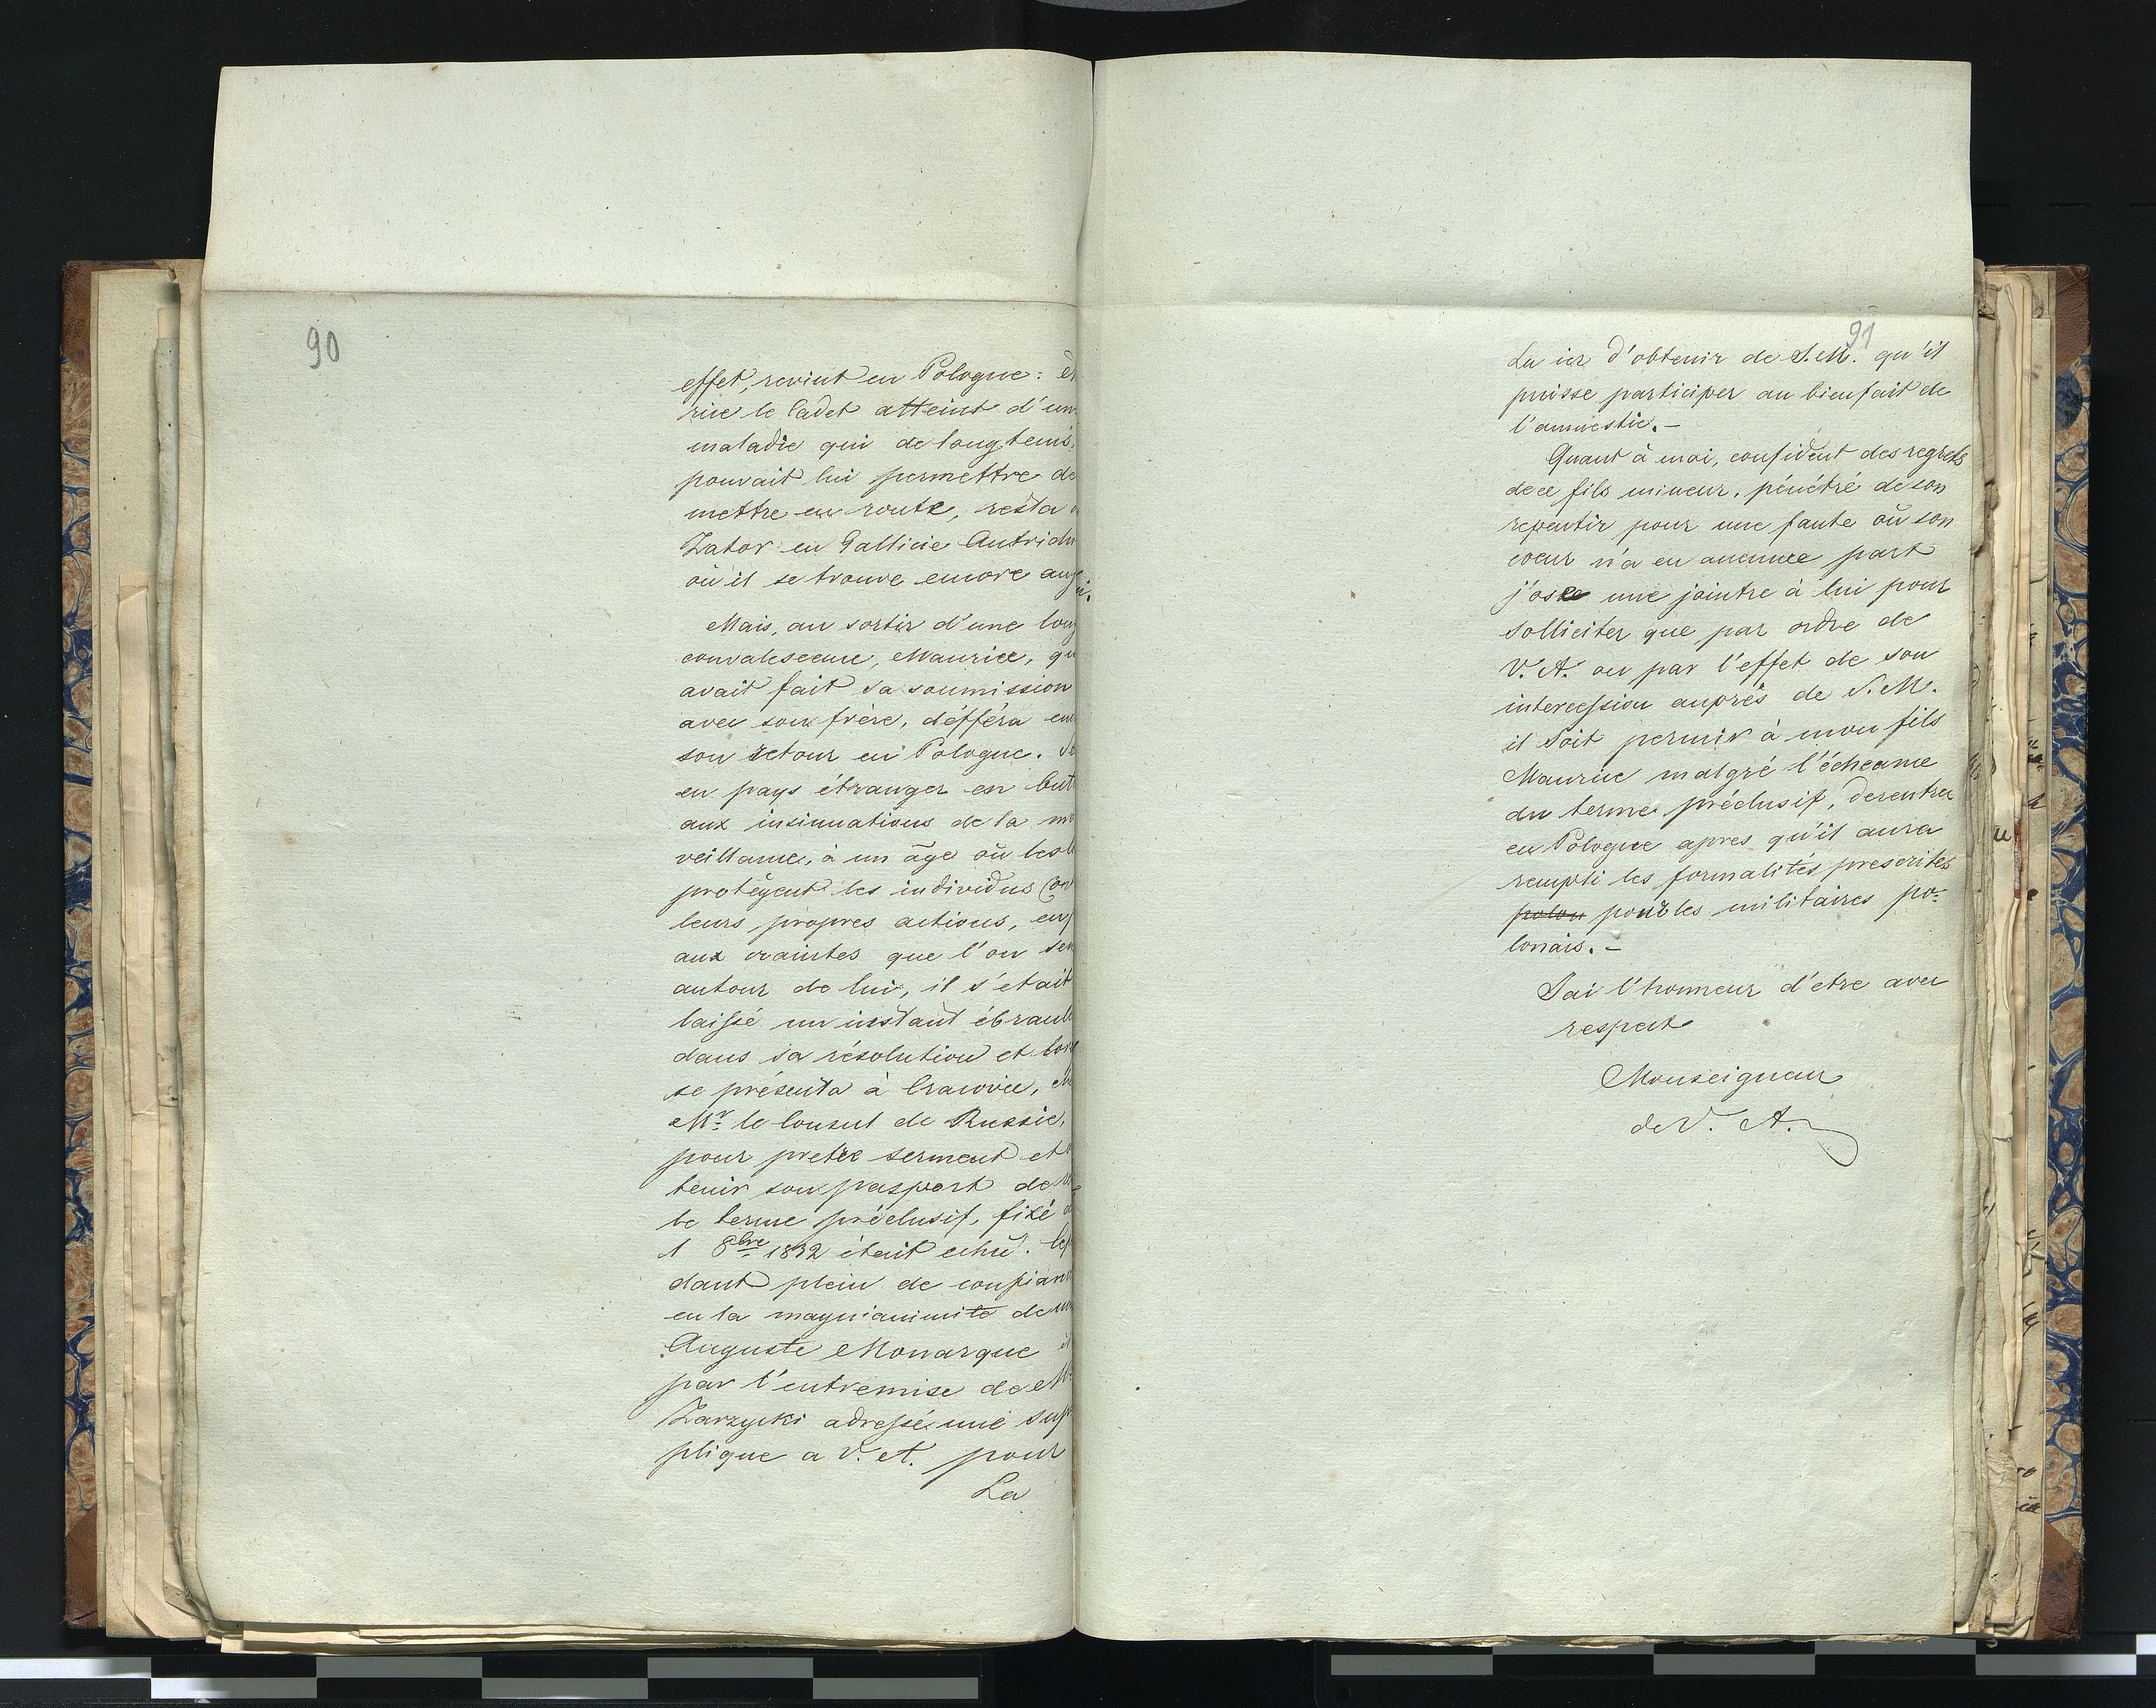 90
effet, revint en Pologne:
rice le Cadet atteint d'un
maladie qui de longtems
pouvait lui permettre de
mettre en route, resta
Zator en Gallicie Autrich
où il se trouve encore auj
Mais, au sortir d'une long
convalescence, Maurice, qu
avait fait sa soumission
avec son frère, défféra en
son retour en Pologne. Se
en pays étranger en but
aux insinuations de la
veillance, à un âge où les
protégent les individus con
leurs propres actions, en
aux craintes que l'on sem
autour de lui, il s'etait
laissé un instant ébranl
dans sa résolution et lors
se présenta à Cracovie,
Mr. le Consul de Russie,
pour preter serment et
tenir son pasport de
le terme préclusif, fixé
1 8bre 1832 était echu. Cep
dant plein de confian
en la magnianimité de
Auguste Monarque
par l'entremise de Mr
Zarzycki adressé une sup
plique a V. A. pour
La
91
La ier d'obtenir de S. M. qu'il
puisse participer au bienfait de
l'amnestie. -
Quant à moi, confident des regrets
de ce fils mineur, pénétré de son
repentir pour une faute où son
coeur n'a eu aucune part
j'ose me jointre à lui pour
solliciter que par ordre de
V. A. ou par l'effet de son
intercession auprès de S. M.
il soit permis à mon fils
Maurice malgré l'écheance
du terme préclusif, de rentrer
en Pologne apres qu'il aura
rempli les formalités prescrites
polon pour les militaires po-
lonais. -
J'ai l'honneur d'etre avec
respect
Monseigneur
de V. A.